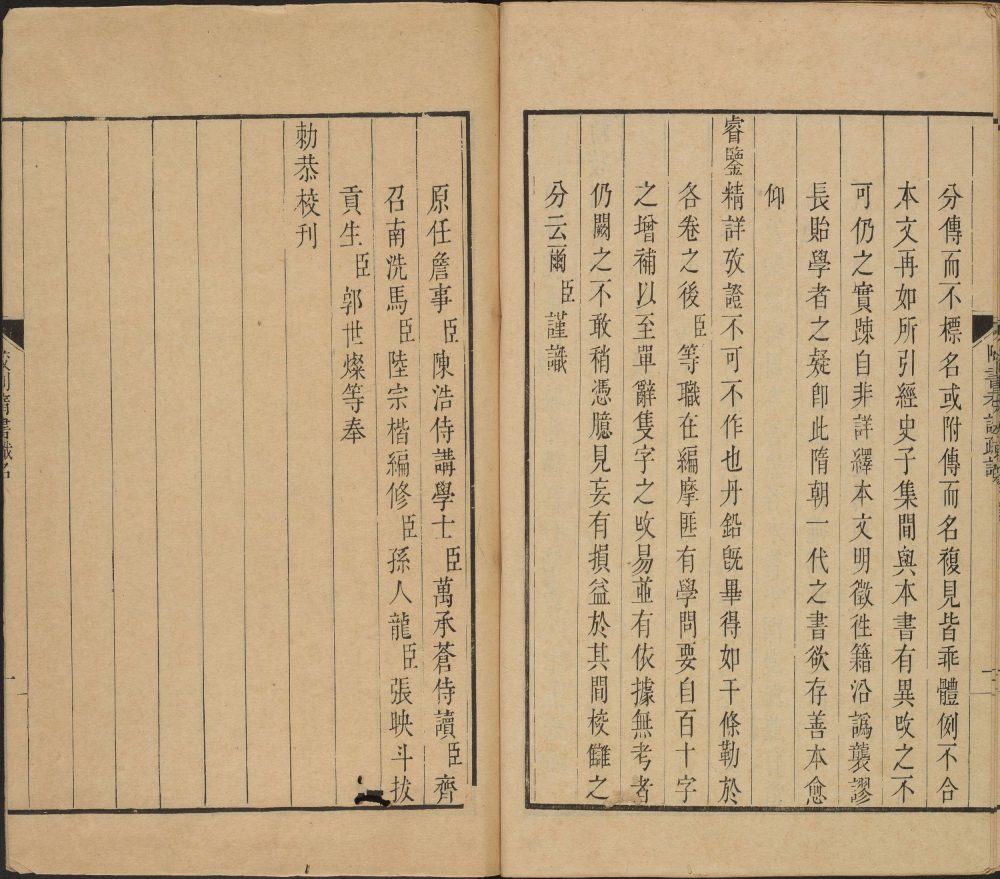 分傳而不標名或附傳而名複見皆乖體例不合
本文再如所引經史子集間與本書有異攺之不
可仍之實踈自非詳繹本文明徵徃籍沿譌襲謬
長貽學者之疑卽此隋朝一代之書欲存善本愈
仰
睿鑒精詳攷證不可不作也丹鉛旣畢得如干條勒於
各卷之後臣等職在編摩匪有學問要自百十字
之增補以至單辭隻字之攺易並有依據無考者
仍闕之不敢稍憑臆見妄有損益於其間校讎之
分云爾臣謹識
原任詹事臣陳浩侍講學士臣萬承蒼侍讀臣齊
召南洗馬臣陸宗楷編修臣孫人龍臣張映斗拔
貢生臣郭世燦等奉
勅恭校刊
校刊隋書職名
一